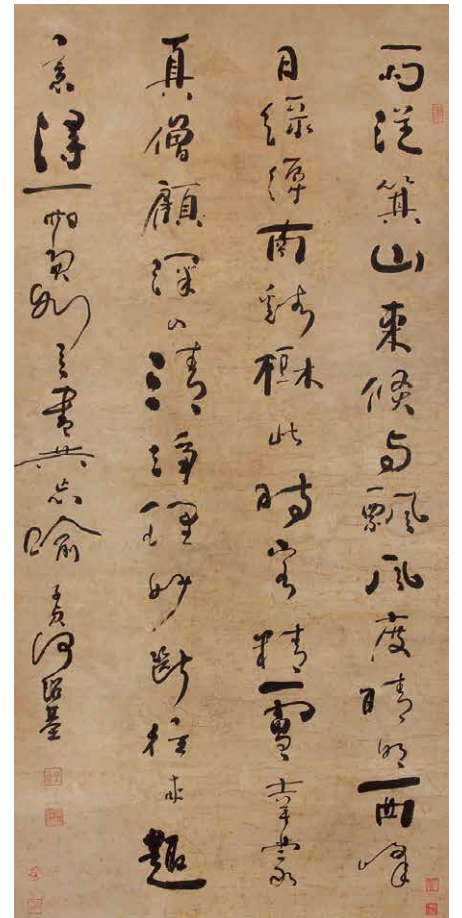 雨從箕山來倏與飄風度晴明西峰
日綠縟南谿樹此時客精廬幸蒙
真僧顧深入清淨理妙斷往來趣
意得兩契如言盡共忘喻 子貞何紹基